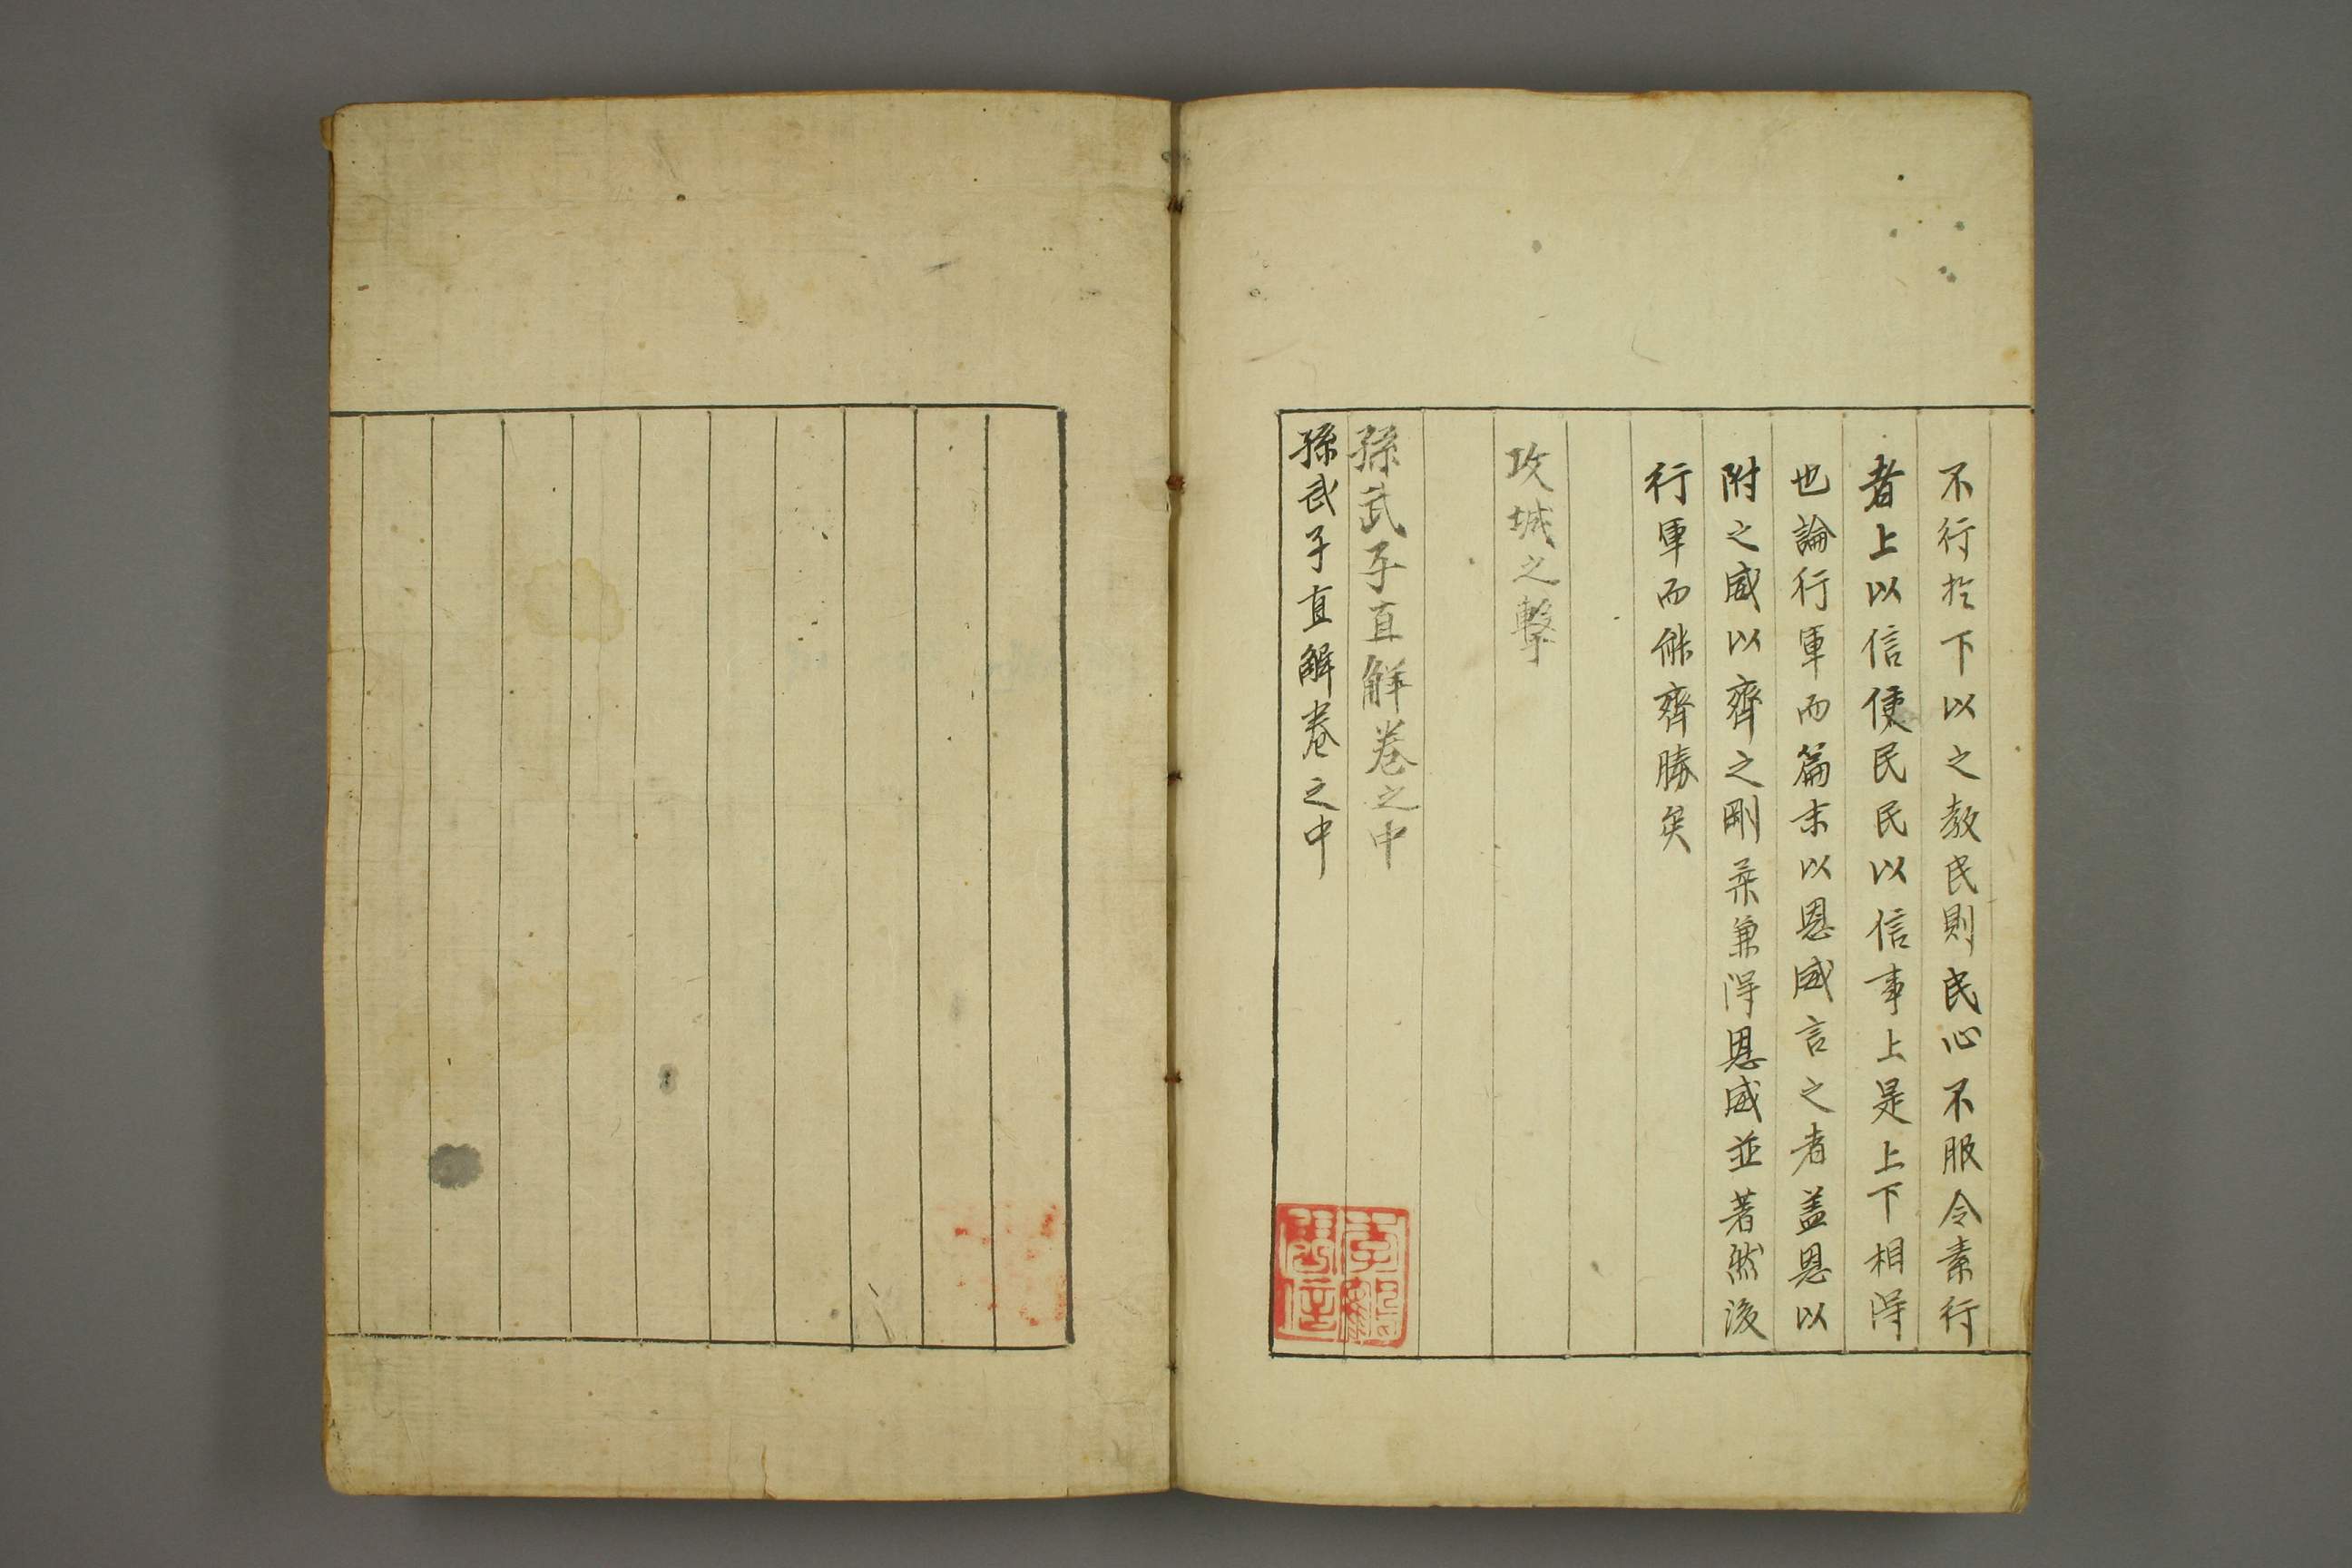 不行於下以之教民則民心不服令素行
者上以信使民民以信事上是上下相得
也論行軍而篇末以恩威言之者盖恩以
附之威以齊之剛柔兼得恩威並著然後
行軍而能齊勝矣
攻城之擊
孫武子直解卷之中
孫武子直解卷之中